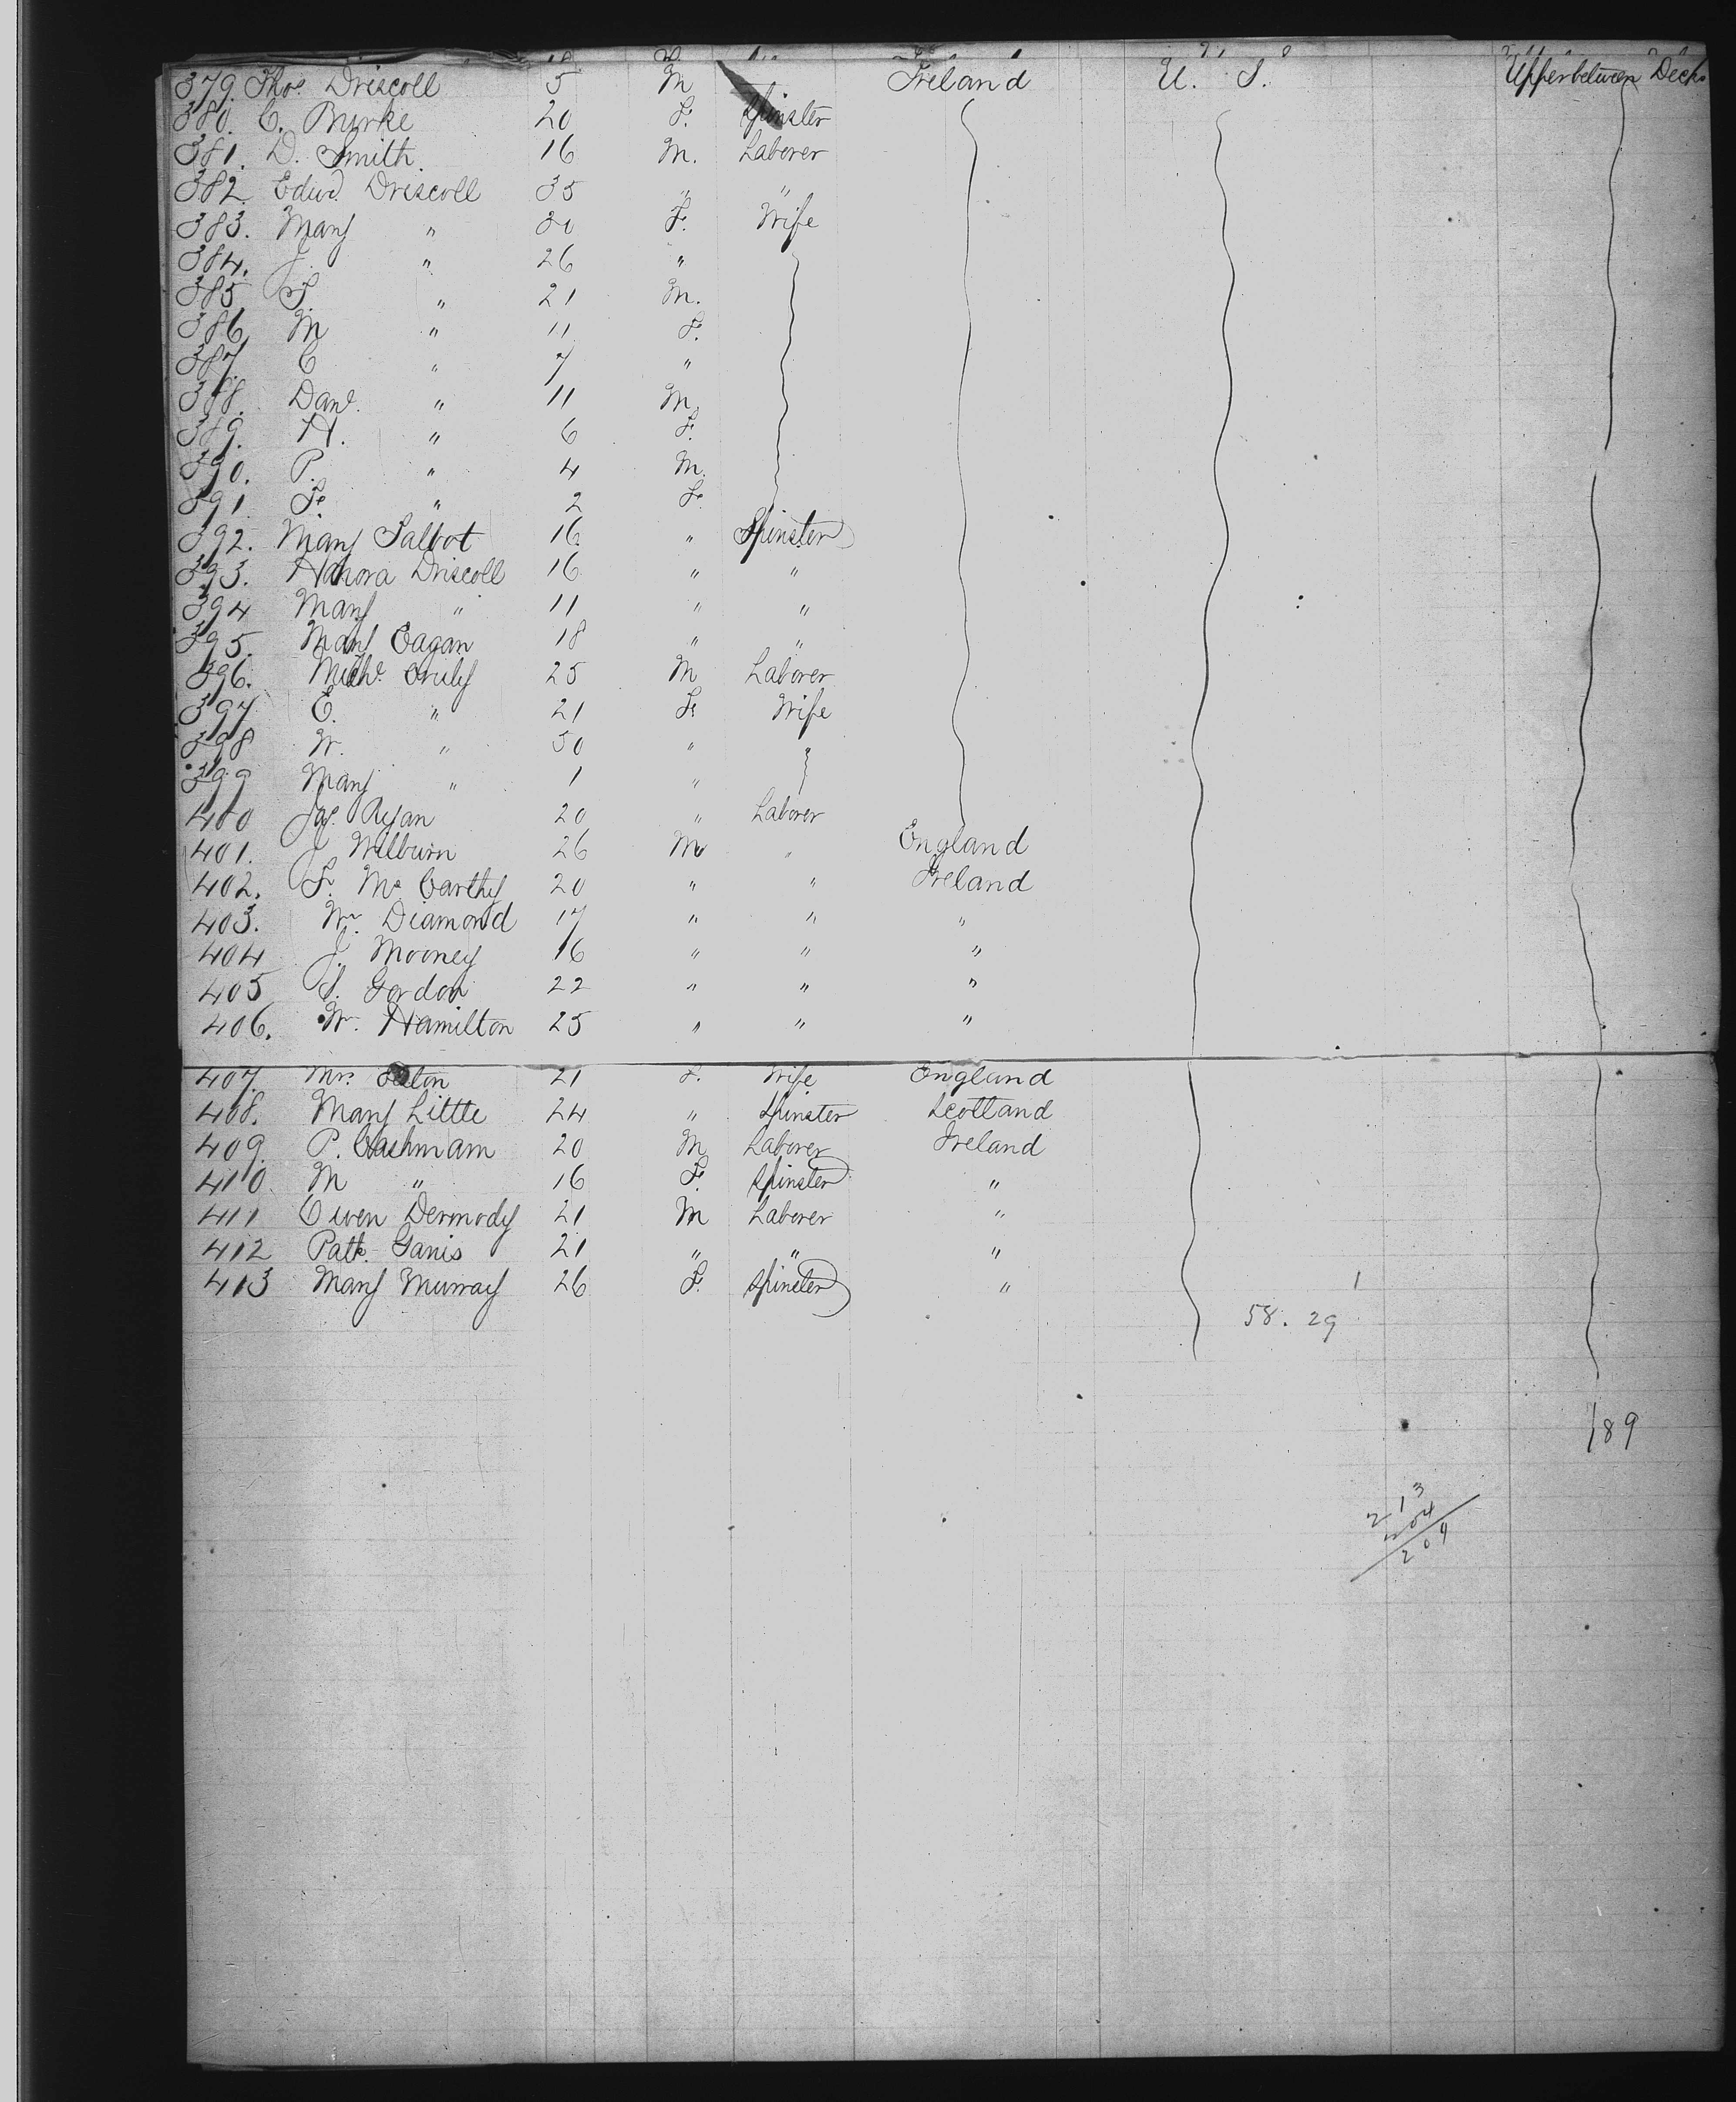 379. Thos. Driscoll 5 M Ireland U. S. Upper between Decks
380. C. Burke 20 F. Spinster
381. D. Smith 16 M. Laborer
382. Edwd. Driscoll 35 " "
383. Mary " 30 F. Wife
384. J. " 26 "
385 T. " 21 M.
386 M " 11 F.
387 C " 7 "
388. Danl. " 11 M.
389. H. " 6 F.
390. P. " 4 M.
391. F. " 2 F.
392. Mary Talbot 16 " Spinster
393. Hanora Driscoll 16 " "
394 Mary " 11 " "
395. Mary Eagan 18 " "
396. Michl. 25 M Laborer
397 E. " 21 F. Wife
398 W. " 50 "
399 Mary " 1 "
400 Jas. Ryan 20 " Laborer
401. J Wilburn 26 M " England
402. F. Mc Carthy 20 " " Ireland
403. Wm. Diamond 17 " " "
404 J. Mooney 16 " " "
405 S. Gordon 22 " " "
406. Wm. Hamilton 25 " " "
407. Mrs. 21 F. Wife England
408. Mary Little 24 " Spinster Scotland
409. P. Cashmam 20 M Laborer Ireland
410. M " 16 F. Spinster "
411 Owen Dermody 21 M Laborer "
412 Patk. Ganis 21 " " "
413 Mary Murray 26 F. Spinster " 1
58. 29
189
213
204
209